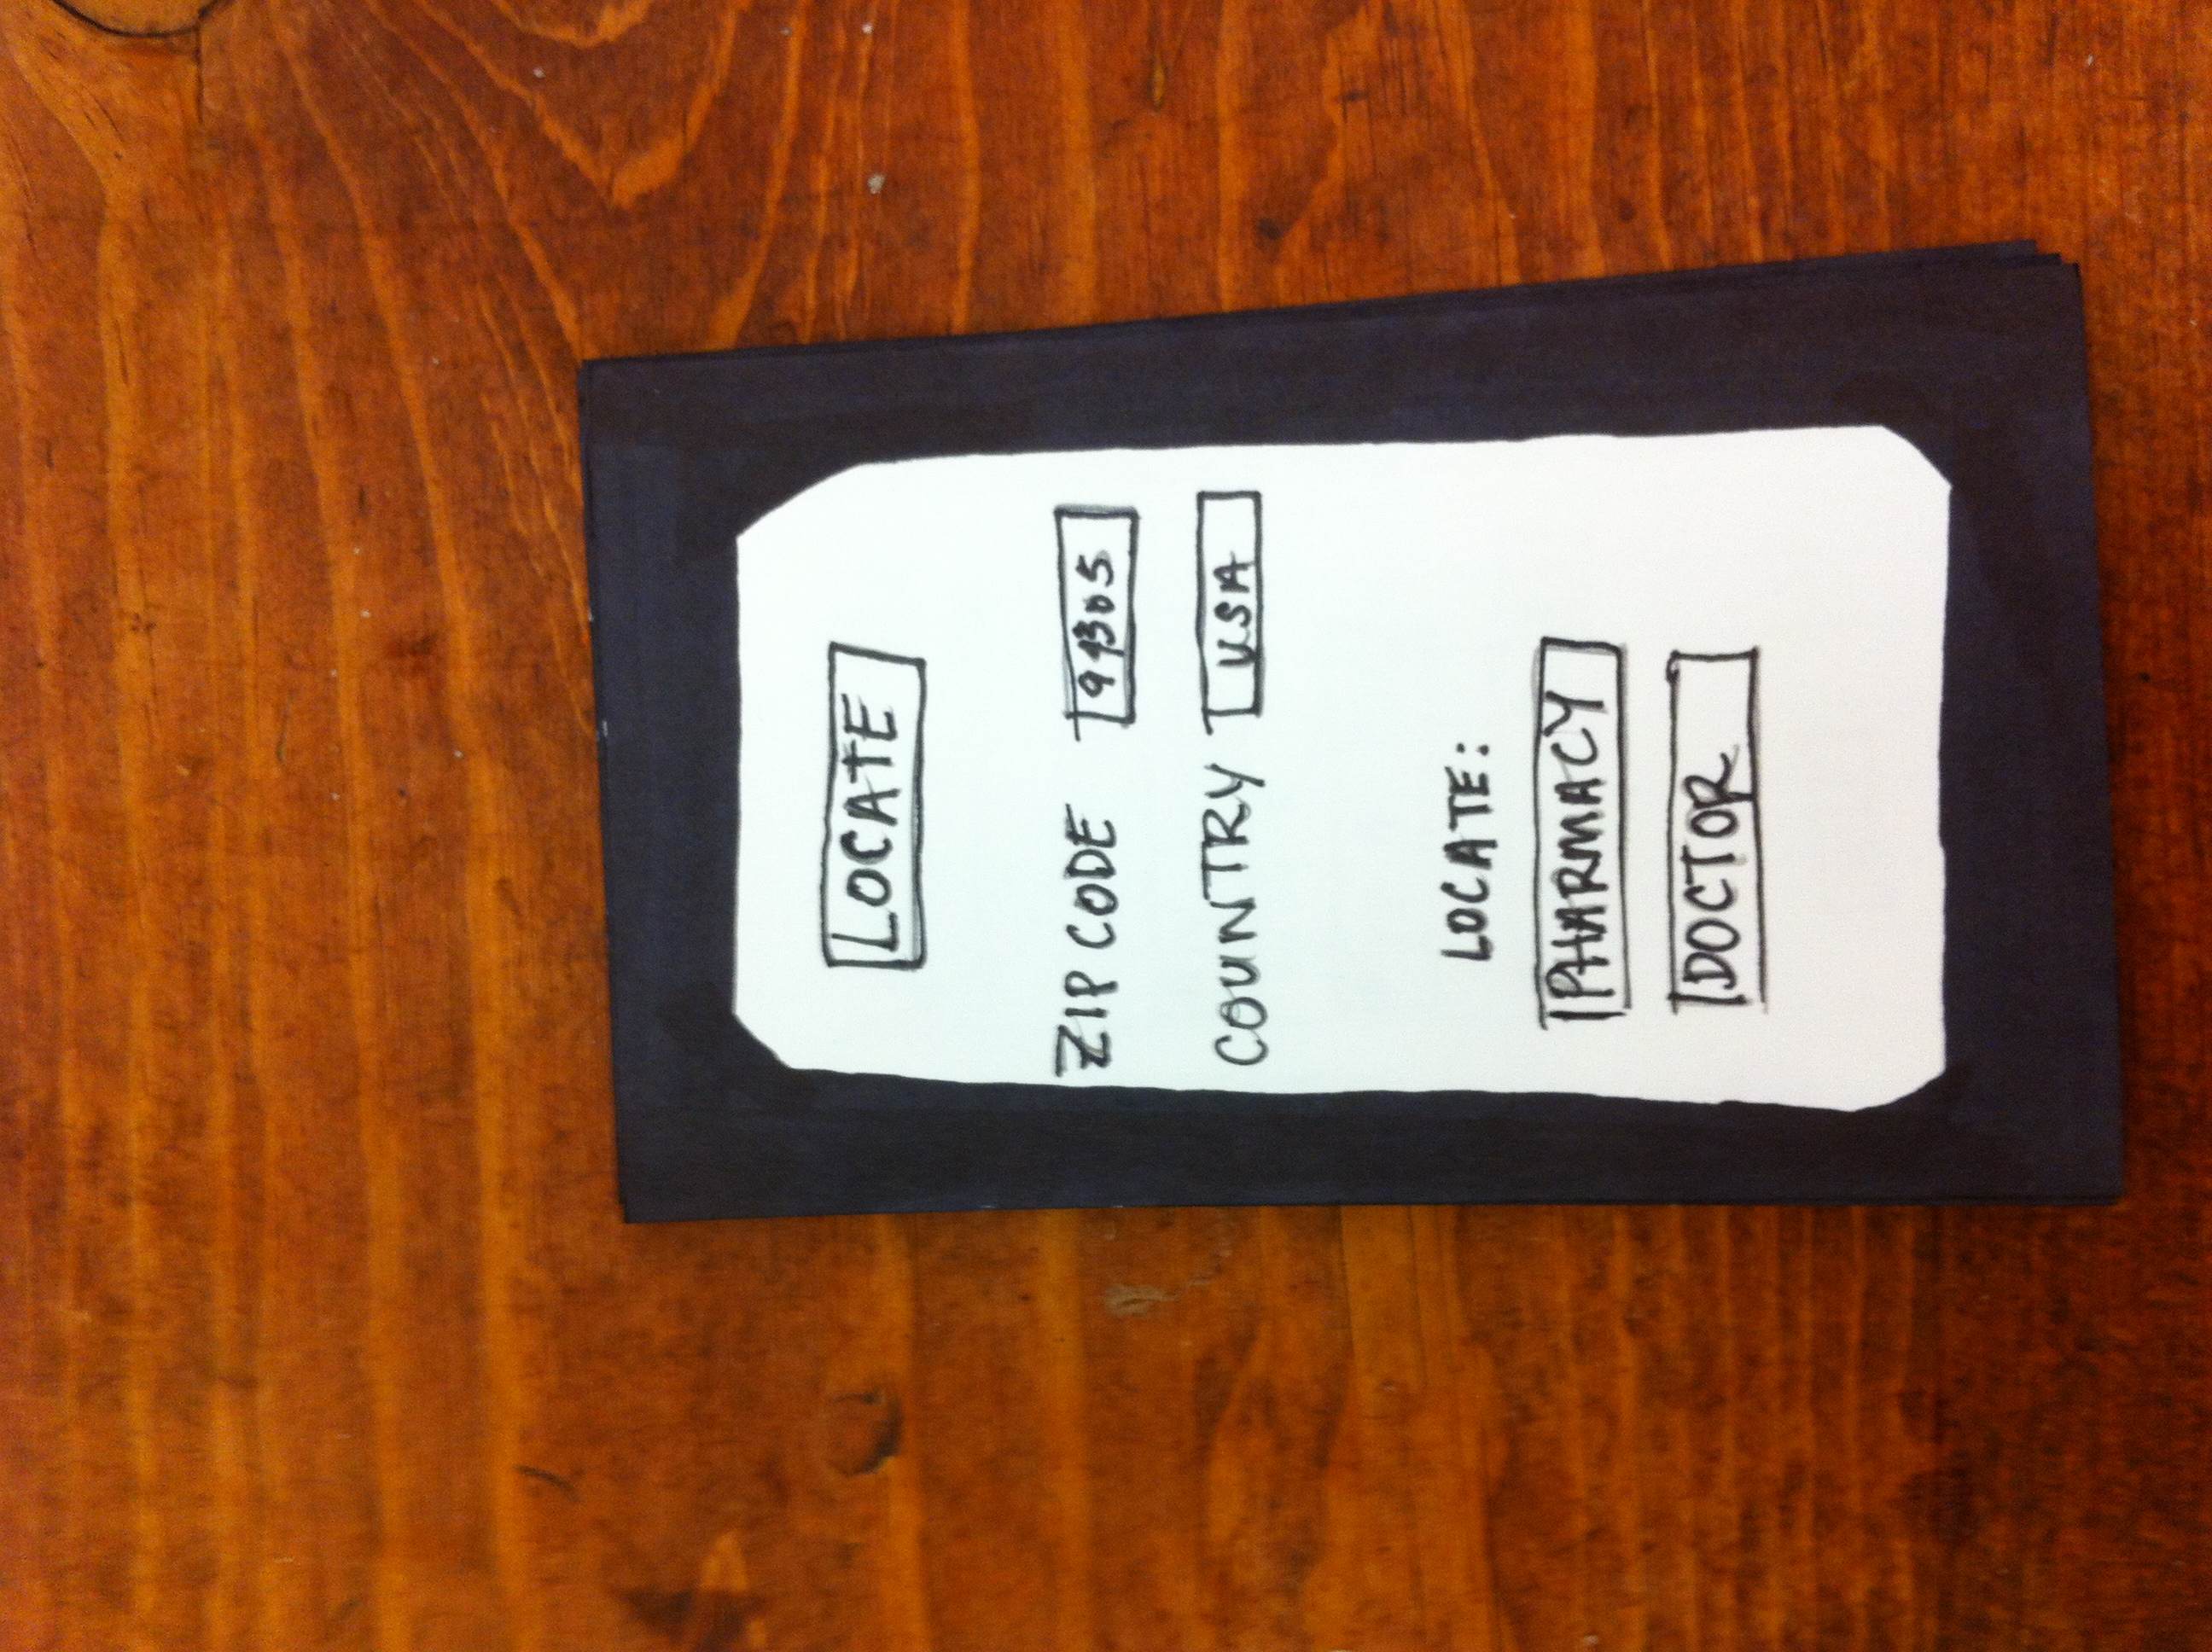 LOCATE
ZIP CODE 94305
COUNTRY USA
LOCATE:
PHARMACY
DOCTOR